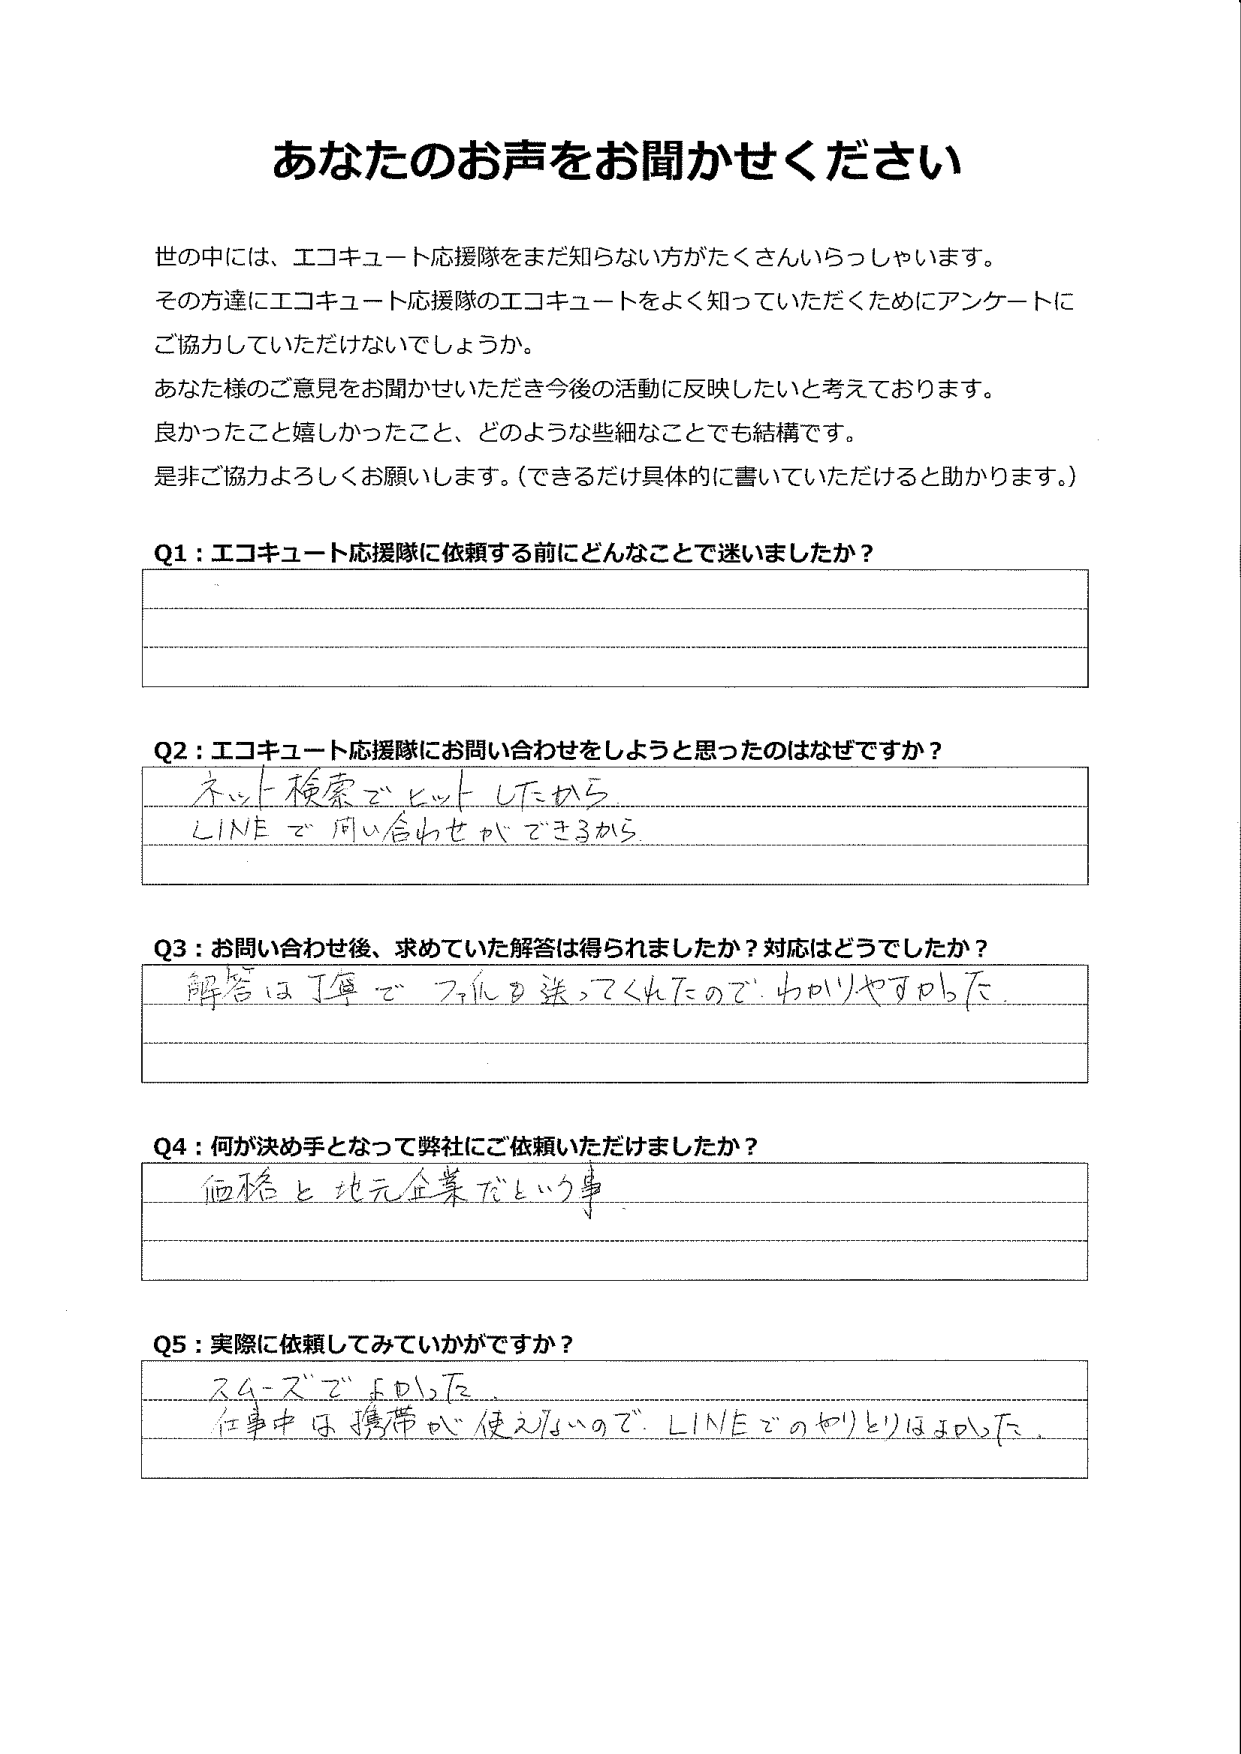 あなたのお声をお聞かせください
世の中には、エコキュート応援隊をまだ知らない方がたくさんいらっしゃいます。
その方達にエコキュート応援隊のエコキュートをよく知っていただくためにアンケートに
ご協力していただけないでしょうか。
あなた様のご意見をお聞かせいただき今後の活動に反映したいと考えております。
良かったこと嬉しかったこと、どのような些細なことでも結構です。
是非ご協力よろしくお願いします。（できるだけ具体的に書いていただけると助かります。）
Q1：エコキュート応援隊に依頼する前にどんなことで迷いましたか？
Q2：エコキュート応援隊にお問い合わせをしようと思ったのはなぜですか？
ネット検索でヒットしたから
LINEで問い合わせができるから
Q3：お問い合わせ後、求めていた解答は得られましたか？対応はどうでしたか？
解答は丁寧でファイルを送ってくれたので、わかりやすかった。
Q4：何が決め手となって弊社にご依頼いただけましたか？
価格と地元企業だという事
Q5：実際に依頼してみていかがですか？
スムーズでよかった。
仕事中は携帯が使えないので、LINEでのやりとりはよかった。